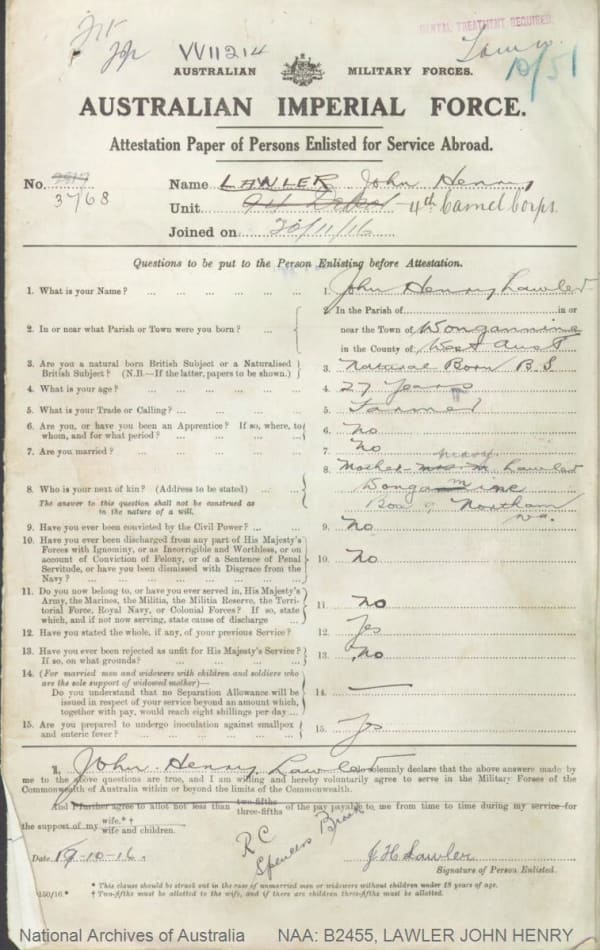 DENTAL TREATMENT REQUIRED
W11214
10/51
AUSTRALIAN MILITARY FORCES.
AUSTRALIAN IMPERIAL FORCE.
Attestation Paper of Persons Enlisted for Service Abroad.
No. 3768
Name LAWLER John Henry
Unit 4th Camel Corps.
Joined on 20/11/16
Questions to be put to the Person Enlisting before Attestation.
1. What is your Name? ... 1. John Henry Lawler
2. In or near what Parish or Town were you born? ... 2. In the Parish of in or
near the Town of Wongamine
in the County of West Aust
3. Are you a natural born British Subject or a Naturalised
British Subject? (N.B.—If the latter, papers to be shown.) 3. Natural Born B.S
4. What is your age? ... 4. 27 Years
5. What is your Trade or Calling? ... 5. Farmer
6. Are you, or have you been an Apprentice? If so, where, to
whom, and for what period? ... 6. No
7. Are you married? ... 7. No
8. Who is your next of kin? (Address to be stated) ... 8. Mother Lawler
Wongamine
Northam
W.A.
The answer to this question shall not be construed as
in the nature of a will.
9. Have you ever been convicted by the Civil Power? ... 9. No
10. Have you ever been discharged from any part of His Majesty's
Forces with Ignominy, or as Incorrigible and Worthless, or on
account of Conviction of Felony, or of a Sentence of Penal
Servitude, or have you been dismissed with Disgrace from the
Navy? ... 10. No
11. Do you now belong to, or have you ever served in, His Majesty's
Army, the Marines, the Militia, the Militia Reserve, the Terri-
torial Force, Royal Navy, or Colonial Forces? If so, state
which, and if not now serving, state cause of discharge ... 11 No
12. Have you stated the whole, if any, of your previous Service? 12. Yes
13. Have you ever been rejected as unfit for His Majesty's Service?
If so, on what grounds? ... 13. No
14. (For married men and widowers with children and soldiers who
are the sole support of widowed mother)—
Do you understand that no Separation Allowance will be
issued in respect of your service beyond an amount which,
together with pay, would reach eight shillings per day ... 14. —
15. Are you prepared to undergo inoculation against smallpox
and enteric fever? ... 15. Yes
I, John Henry Lawler do solemnly declare that the above answers made by
me to the above questions are true, and I am willing and hereby voluntarily agree to serve in the Military Forces of the
Commonwealth of Australia within or beyond the limits of the Commonwealth.
And I further agree to allot not less than two-fifths
three-fifths of the pay payable to me from time to time during my service for
the support of my wife.*†
wife and children.
R C
Spencers Brook
Date 19-10-16.
J H Lawler
Signature of Person Enlisted.
* This clause should be struck out in the case of unmarried men or widowers without children under 18 years of age.
† Two-fifths must be allotted to the wife, and if there are children three-fifths must be allotted.
National Archives of Australia NAA: B2455, LAWLER JOHN HENRY